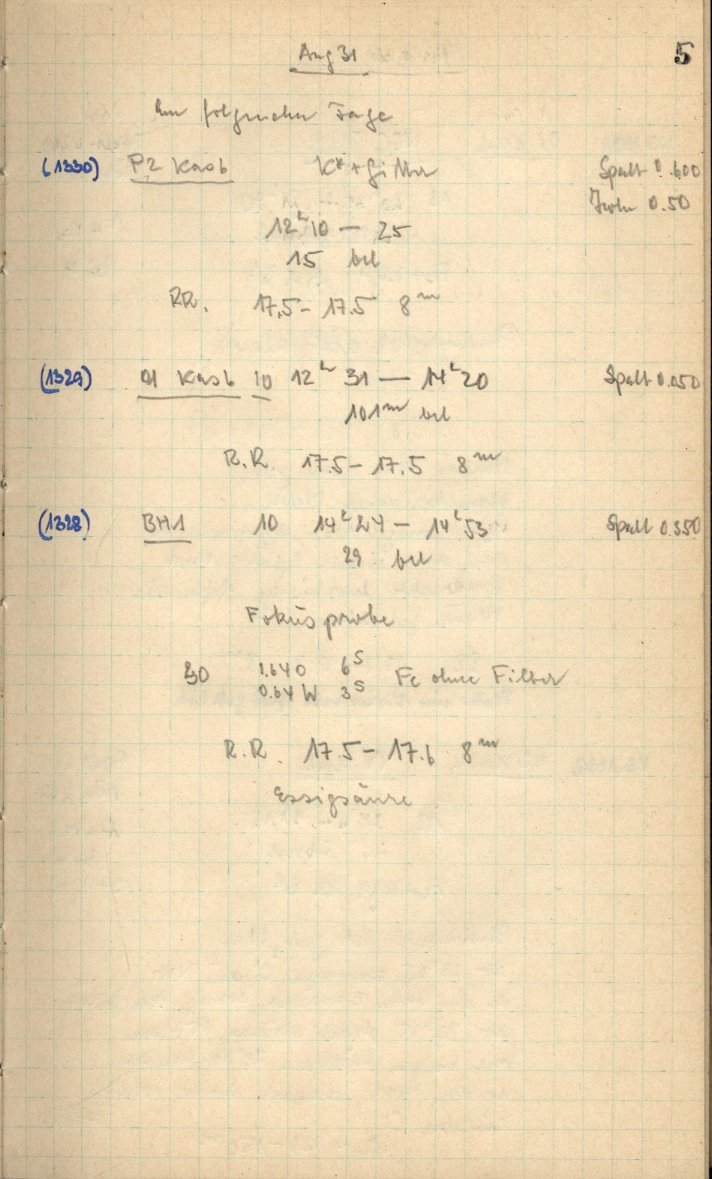 Aug 31 5
Am folgenden Tage
(1330) P2 Kasb K* + Gitter Spalt 0.600
0.50
12ʰ10 — 25
15 bel
RR. 17.5 – 17.5 8ᵐ
(1329) Kasb 10 12ʰ 31 — 14ʰ20 Spalt 0.050
101ᵐ bel
R.R. 17.5 – 17.5 8ᵐ
(1328) BH1 10 14ʰ24 — 14ʰ53 Spalt 0.350
29 bel
Fokusprobe
1.640 6ˢ
0.64 W 3ˢ Fe ohne Filter
R.R. 17.5 – 17.6 8ᵐ
Essigsäure